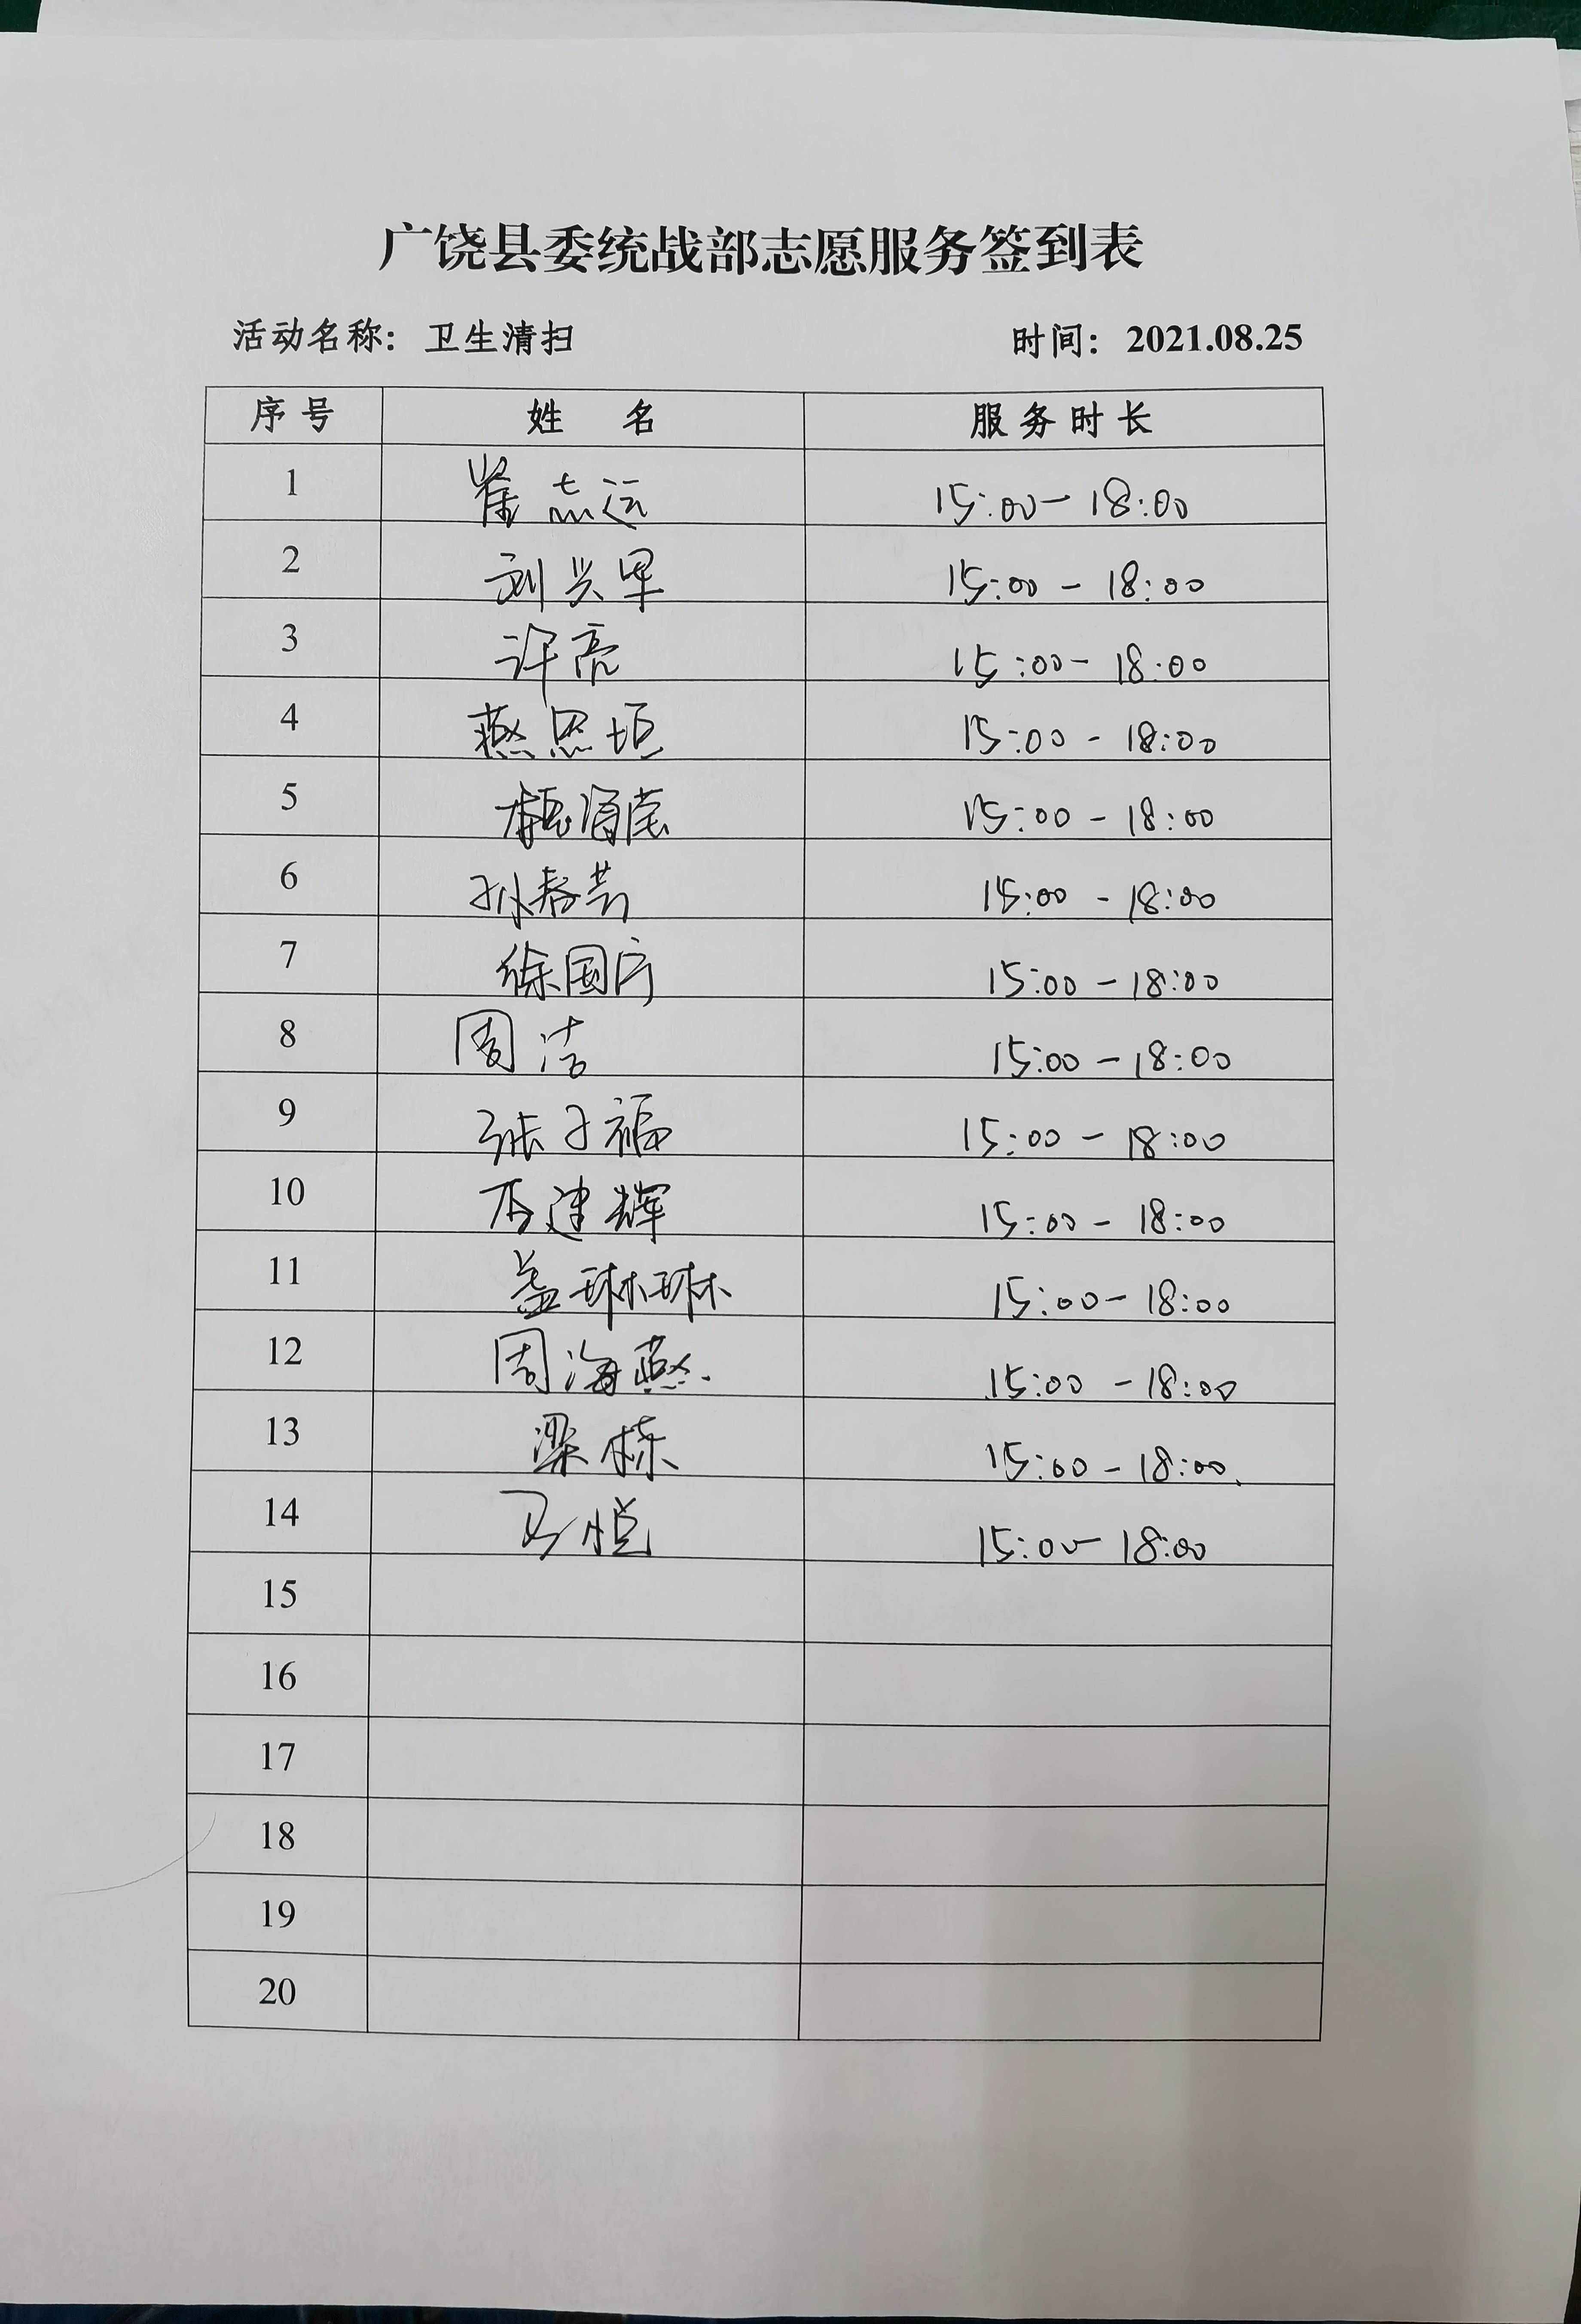 广饶县委统战部志愿服务签到表
活动名称：卫生清扫 时间：2021.08.25
序号 姓 名 服务时长
1 崔志远 15:00-18:00
2 刘兴军 15:00-18:00
3 许亮 15:00-18:00
4 燕思垣 15:00-18:00
5 海 15:00-18:00
6 孙春芸 15:00-18:00
7 徐国庆 15:00-18:00
8 周洁 15:00-18:00
9 张子福 15:00-18:00
10 石建辉 15:00-18:00
11 盖琳琳 15:00-18:00
12 周海燕. 15:00-18:00
13 梁栋 15:00-18:00.
14 马悦 15:00-18:00
15
16
17
18
19
20